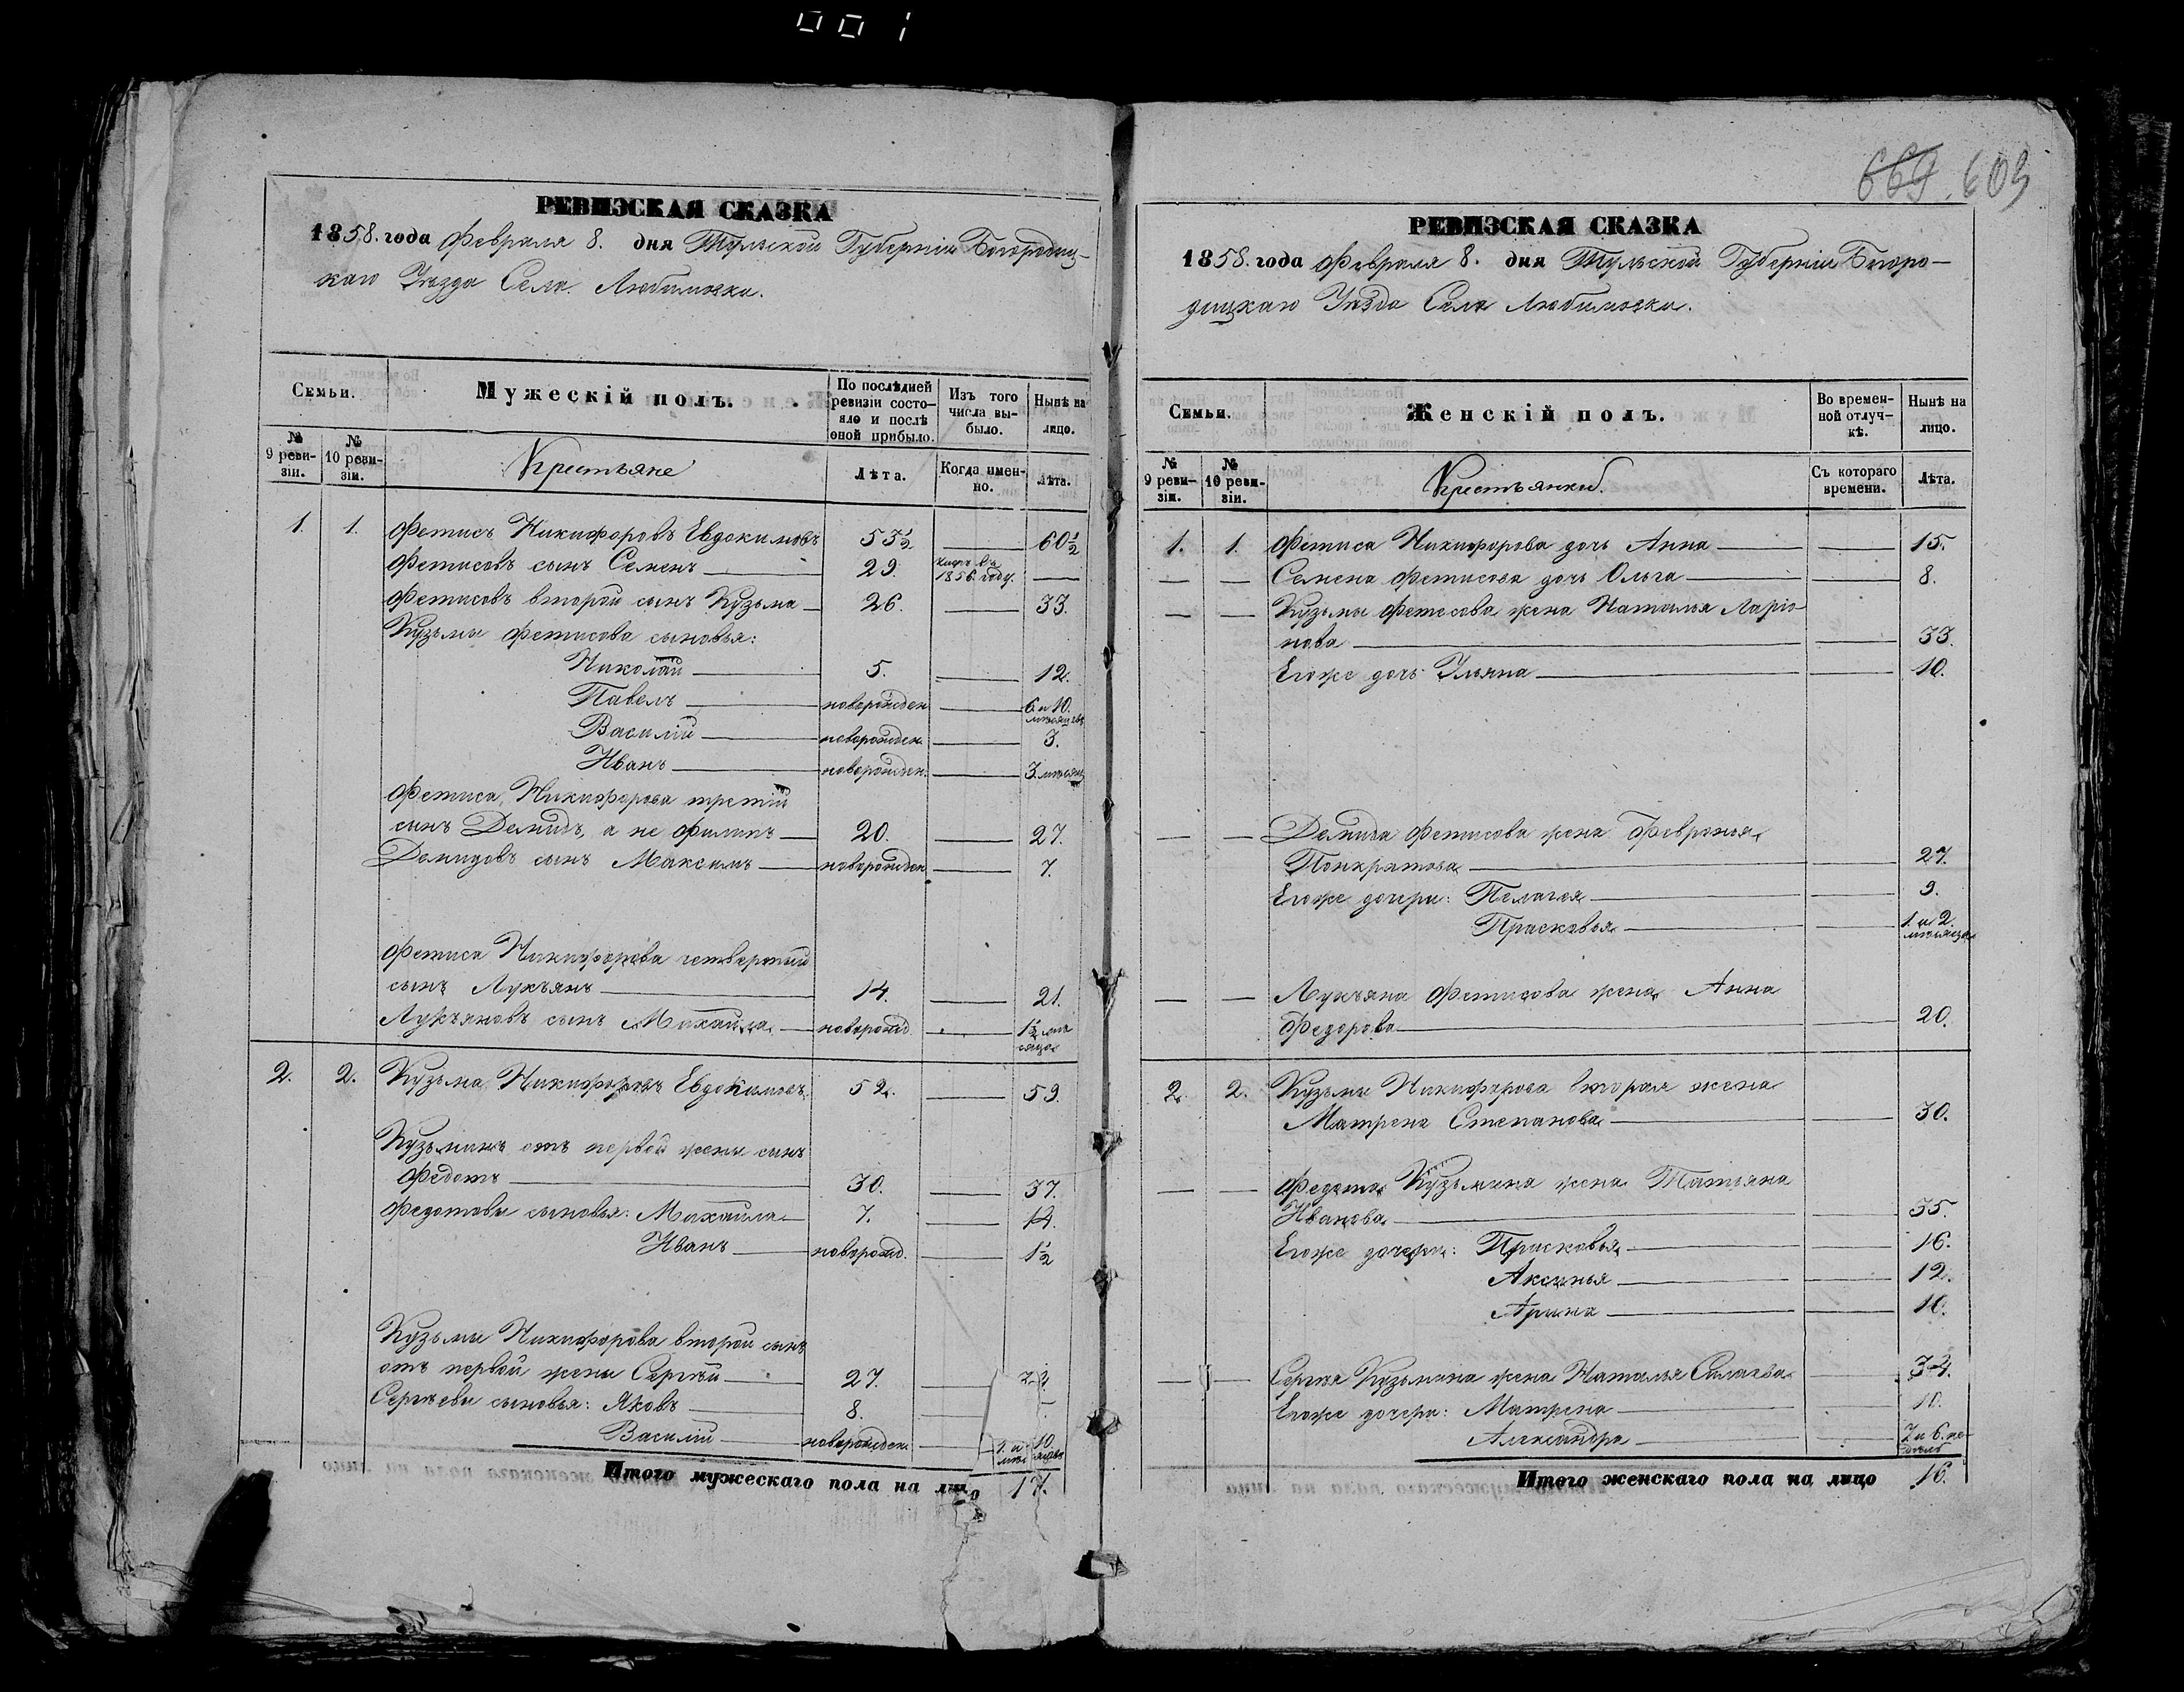 001
669. 603
РЕВИЗСКАЯ СКАЗКА
1858. года Февраля 8. дня Тульской Губерніи Богородиц-
каго Уѣзда Села Любимовки.
Семьи.
Мужескій полъ.
По послѣдней ревизіи состо-яло и послѣ оной прибыло.
Изъ того числа вы-было.
Нынѣ на лицо.
№ 9 реви-зіи.
№ 10 реви-зіи.
Крестьяне
Лѣта.
Когда имен-но.
Лѣта.
1. 1. Фетисъ Никифоровъ Евдокимовъ 53½ 60½
Фетисовъ сынъ Семенъ 29. 1856. году.
Фетисовъ второй сынъ Кузьма 26. 33.
Кузьмы Фетисова сыновья:
Николай 5. 12.
Павелъ новорожден. 6 и 10. мѣсяцевъ
Василій новорожден. 3.
Иванъ новорожден. 3. мѣсяц
Фетиса Никифорова третій
сынъ Демидъ, а не Филипъ 20. 27.
Демидовъ сынъ Максимъ новорожден. 7.
Фетиса Никифорова четвертый
сынъ Лукъянъ 14. 21.
Лукъяновъ сынъ Михайла новорожд. 1½ мѣ
сяца
2. 2. Кузьма Никифоровъ Евдокимовъ 52. 59.
Кузьминъ отъ первой жены сынъ
Федотъ 30. 37.
Федотовы сыновья: Михайла 7. 14.
Иванъ новорожд. 1½
Кузьмы Никифорова второй сынъ
отъ первой жены Сергѣй 27.
Сергѣевы сыновья: Яковъ 8.
Василій новорожден. 1. и 10.
Итого мужескаго пола на лицо 17.
РЕВИЗСКАЯ СКАЗКА
1858. года Февраля 8. дня Тульской Губерніи Богоро-
дицкаго Уѣзда Села Любимовки.
Семьи.
Женскій полъ.
Во времен-ной отлуч-кѣ.
Нынѣ на лицо.
№ 9 реви-зіи.
№ 10 реви-зіи.
Крестьянки.
Съ котораго времени.
Лѣта.
1. 1. Фетиса Никифорова дочь Анна 15.
Семена Фетисова дочь Ольга 8.
Кузьмы Фетисова жена Наталья Ларіо-
нова 33.
Егоже дочь Ульяна 10.
Демида Фетисова жена Февронья
Понкратова 27.
Егоже дочери: Пелагея 9.
Прасковья 1. и 2. мѣсяца
Лукъяна Фетисова жена Анна
Федорова 20.
2. 2. Кузьмы Никифорова вторая жена
Матрена Степанова 30.
Федота Кузьмина жена Татьяна
Иванова 35.
Егоже дочери: Прасковья 16.
Аксинья 12.
Арина 10.
Сергѣя Кузьмина жена Наталья Силаева 34.
Егоже дочери: Матрена 10.
Александра 7 и 6. не-
дѣль
Итого женскаго пола на лицо 16.